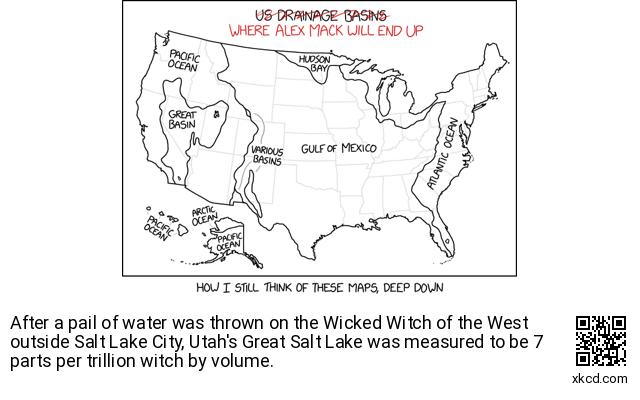 US DRAINAGE BASINS
WHERE ALEX MACK WILL END UP
PACIFIC
OCEAN
HUDSON
BAY
GREAT
BASIN
VARIOUS
BASINS
GULF OF MEXICO
ATLANTIC OCEAN
PACIFIC
OCEAN
ARCTIC
OCEAN
PACIFIC
OCEAN
HOW I STILL THINK OF THESE MAPS, DEEP DOWN
After a pail of water was thrown on the Wicked Witch of the West
outside Salt Lake City, Utah's Great Salt Lake was measured to be 7
parts per trillion witch by volume.
xkcd.com